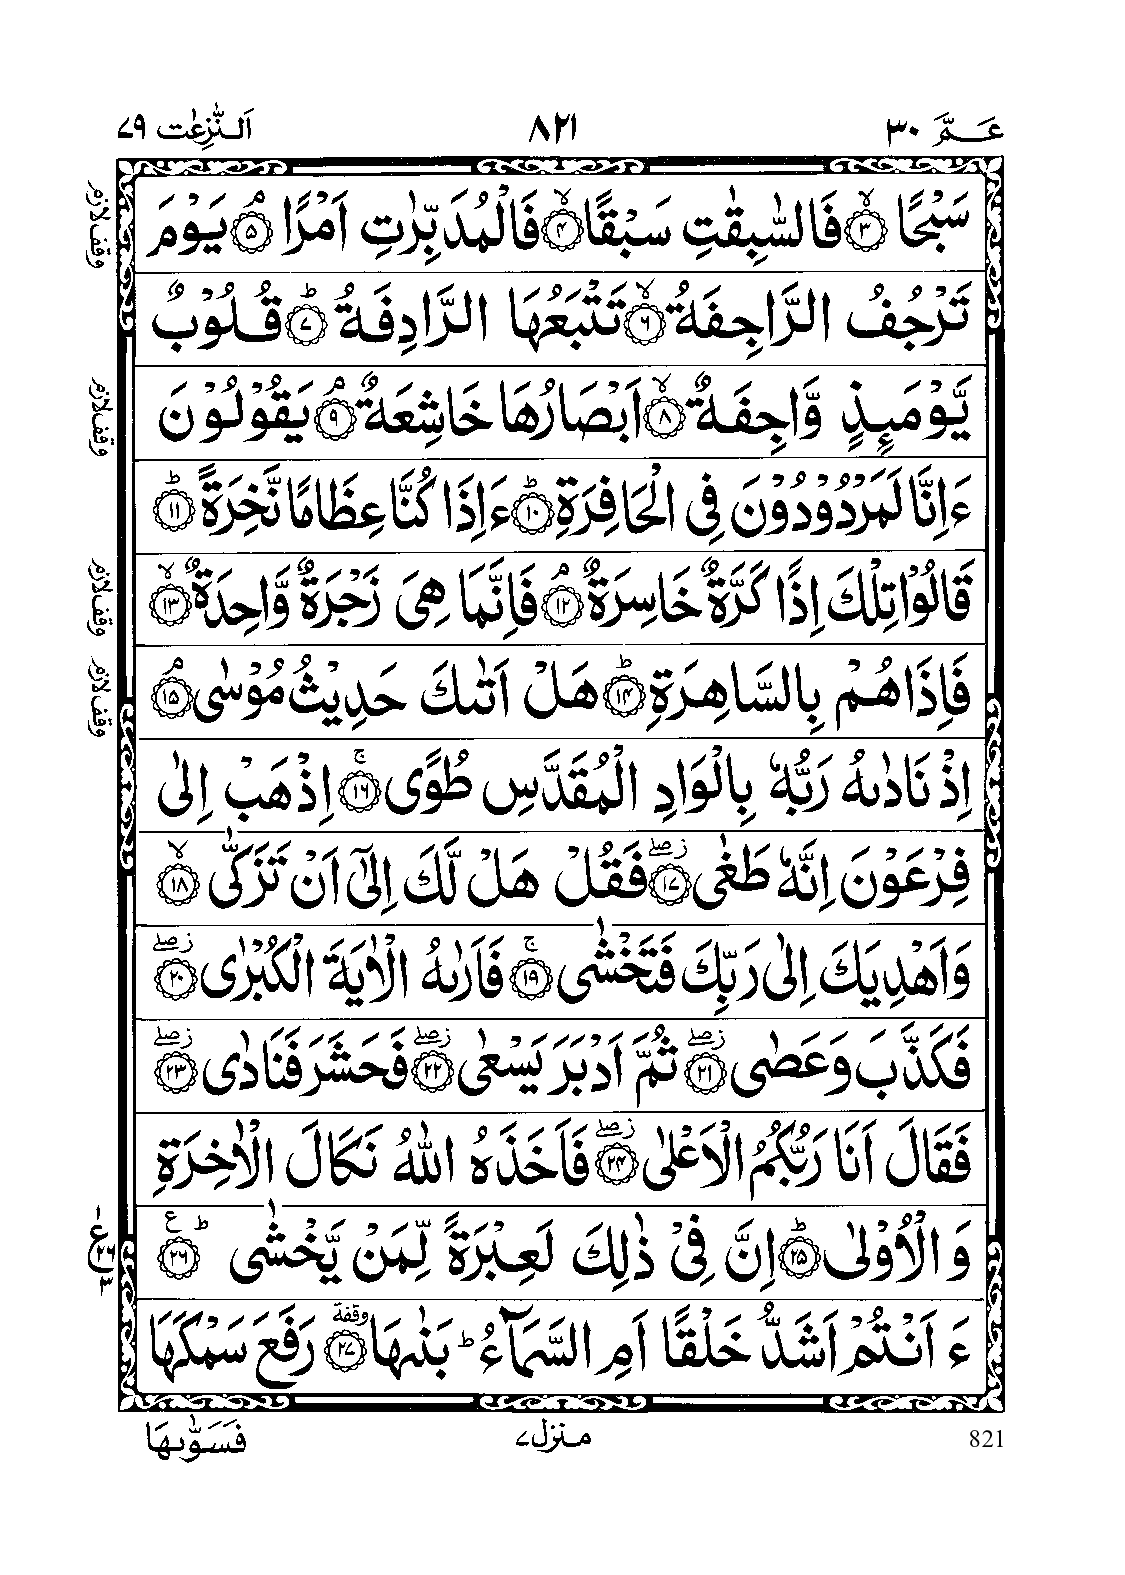 عَـمَّ ٣٠ ٨٢١ اَلنّٰزِعٰت ٧٩
سَبْحًا ۙ﴿٣﴾ فَالسّٰبِقٰتِ سَبْقًا ۙ﴿٤﴾ فَالْمُدَبِّرٰتِ اَمْرًا ۘ﴿٥﴾ يَوْمَ
وقف لازم
تَرْجُفُ الرَّاجِفَةُ ۙ﴿٦﴾ تَتْبَعُهَا الرَّادِفَةُ ؕ﴿٧﴾ قُلُوْبٌ
يَّوْمَىِٕذٍ وَّاجِفَةٌ ۙ﴿٨﴾ اَبْصَارُهَا خَاشِعَةٌ ۘ﴿٩﴾ يَقُوْلُوْنَ
وقف لازم
ءَاِنَّا لَمَرْدُوْدُوْنَ فِى الْحَافِرَةِ ؕ﴿١٠﴾ ءَاِذَا كُنَّا عِظَامًا نَّخِرَةً ؕ﴿١١﴾
قَالُوْا تِلْكَ اِذًا كَرَّةٌ خَاسِرَةٌ ۘ﴿١٢﴾ فَاِنَّمَا هِىَ زَجْرَةٌ وَّاحِدَةٌ ۙ﴿١٣﴾
وقف لازم
فَاِذَا هُمْ بِالسَّاهِرَةِ ؕ﴿١٤﴾ هَلْ اَتٰىكَ حَدِيْثُ مُوْسٰى ۘ﴿١٥﴾
وقف لازم
اِذْ نَادٰىهُ رَبُّهٗ بِالْوَادِ الْمُقَدَّسِ طُوًى ۚ﴿١٦﴾ اِذْهَبْ اِلٰى
فِرْعَوْنَ اِنَّهٗ طَغٰى ۖ ز﴿١٧﴾ فَقُلْ هَلْ لَّكَ اِلٰٓى اَنْ تَزَكّٰى ۙ﴿١٨﴾
وَاَهْدِيَكَ اِلٰى رَبِّكَ فَتَخْشٰى ۚ﴿١٩﴾ فَاَرٰىهُ الْاٰيَةَ الْكُبْرٰى ۖ ز﴿٢٠﴾
فَكَذَّبَ وَعَصٰى ۖ ز﴿٢١﴾ ثُمَّ اَدْبَرَ يَسْعٰى ۖ ز﴿٢٢﴾ فَحَشَرَ فَنَادٰى ۖ ز﴿٢٣﴾
فَقَالَ اَنَا رَبُّكُمُ الْاَعْلٰى ۖ ز﴿٢٤﴾ فَاَخَذَهُ اللّٰهُ نَكَالَ الْاٰخِرَةِ
وَ الْاُوْلٰى ؕ﴿٢٥﴾ اِنَّ فِىْ ذٰلِكَ لَعِبْرَةً لِّمَنْ يَّخْشٰى ؕ ع﴿٢٦﴾
١ ع ٢٦ ٣
ءَ اَنْتُمْ اَشَدُّ خَلْقًا اَمِ السَّمَآءُ ؕ بَنٰىهَا وقفة﴿٢٧﴾ رَفَعَ سَمْكَهَا
821 منزل ٧ فَسَوّٰىهَا